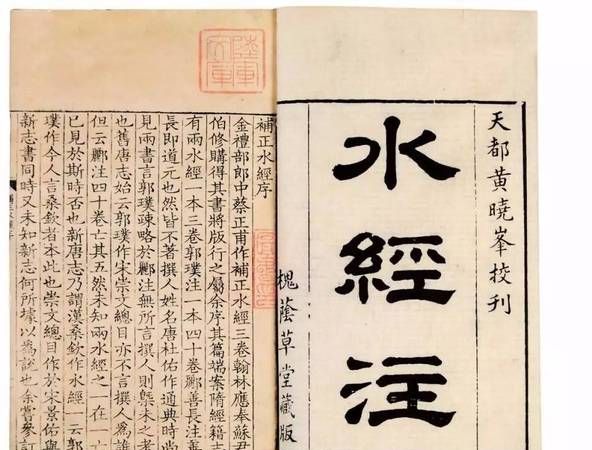 天都黃曉峯挍刊
水經注
槐蔭草堂藏版
補正水經序
金禮部郎中蔡正甫作補正水經三卷翰林應奉蘇君
伯修購得其書將版行之屬余序其篇端案隋經籍志
有兩水經一本三卷郭璞注一本四十卷酈善長注
長即道元也然皆不著撰人姓名唐杜佑作通典時尚
見兩書言郭璞疎略於酈注無所言撰人則槩未之考
也舊唐志始云郭璞作宋崇文總目亦不言撰人為誰
但云酈注四十卷亡其五然未知兩水經之一在一
已見於斯時否也新唐志乃謂漢桑欽作水經一云郭
璞作今人言桑欽者本此也崇文總目作於宋景佑與
新志書同時又未知新志何所據以為說也余嘗參訂